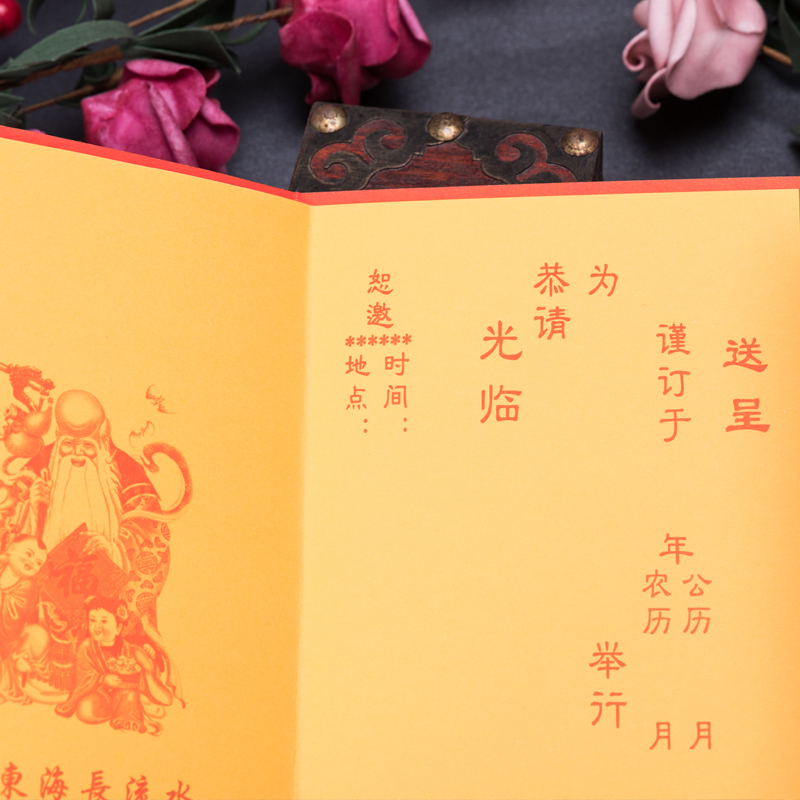 送呈
谨订于
年
公历
农历
月
月
为
举行
恭请
光临
恕邀
******
时间：
地点：
福
東海長流水